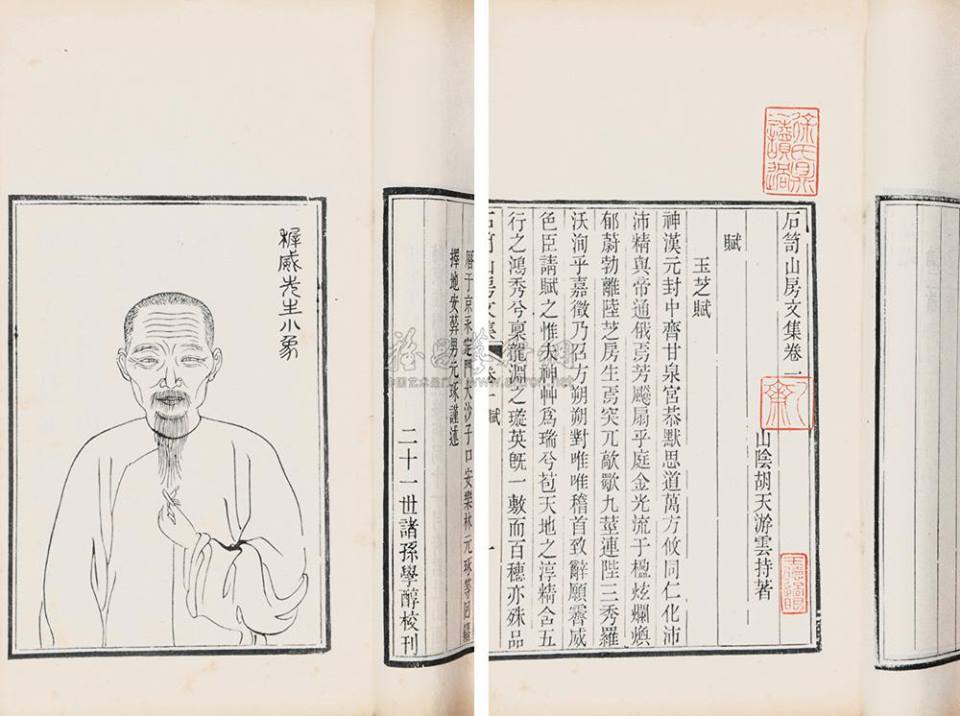 稚威先生小象
曆于京永定門大沙子口安樂林元琢等
擇地安葬男元琢謹述
二十一世諸孫學醇校刊
石笥山房文集卷一
山陰胡天游雲持著
賦
玉芝賦
神漢元封中齊甘泉宮恭默思道萬方攸同仁化沛
沛精與帝通俄焉芳飈扇乎庭金光流于楹炫爛煥
郁蔚勃離陸芝房生焉突兀歊歊九莖連陛三秀羅
沃洵乎嘉徵乃召方朔朔對唯唯稽首致辭願霽威
色臣請賦之惟大神艸為瑞兮苞天地之淳精含五
行之鴻秀兮稟龍淵之璇英旣一敷而百穗亦殊品
石笥山房文集
卷一賦
一
徐氏鼎
讀過